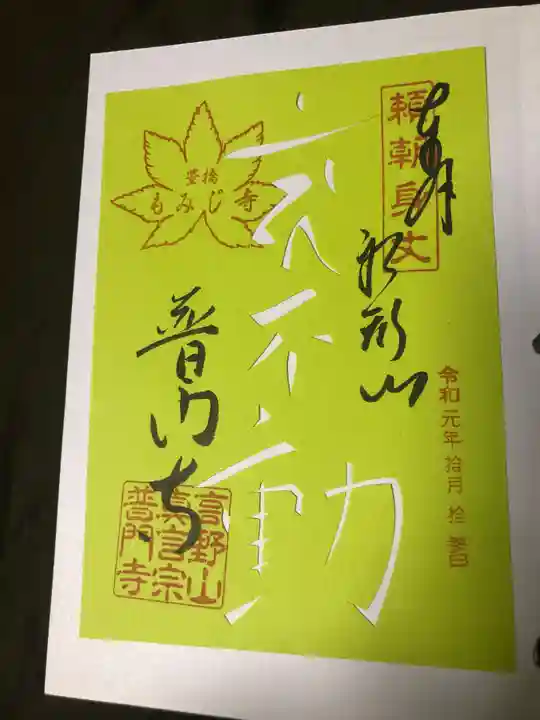 頼朝身丈
奉拝
船形山
令和元年 拾月 拾
不動
豊橋
もみじ寺
普門寺
高野山
真言宗
普門寺